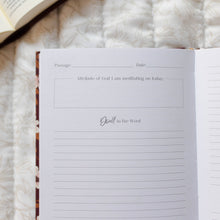 Passage: Date:
Attribute of God I am meditating on today
Dwell in the Word